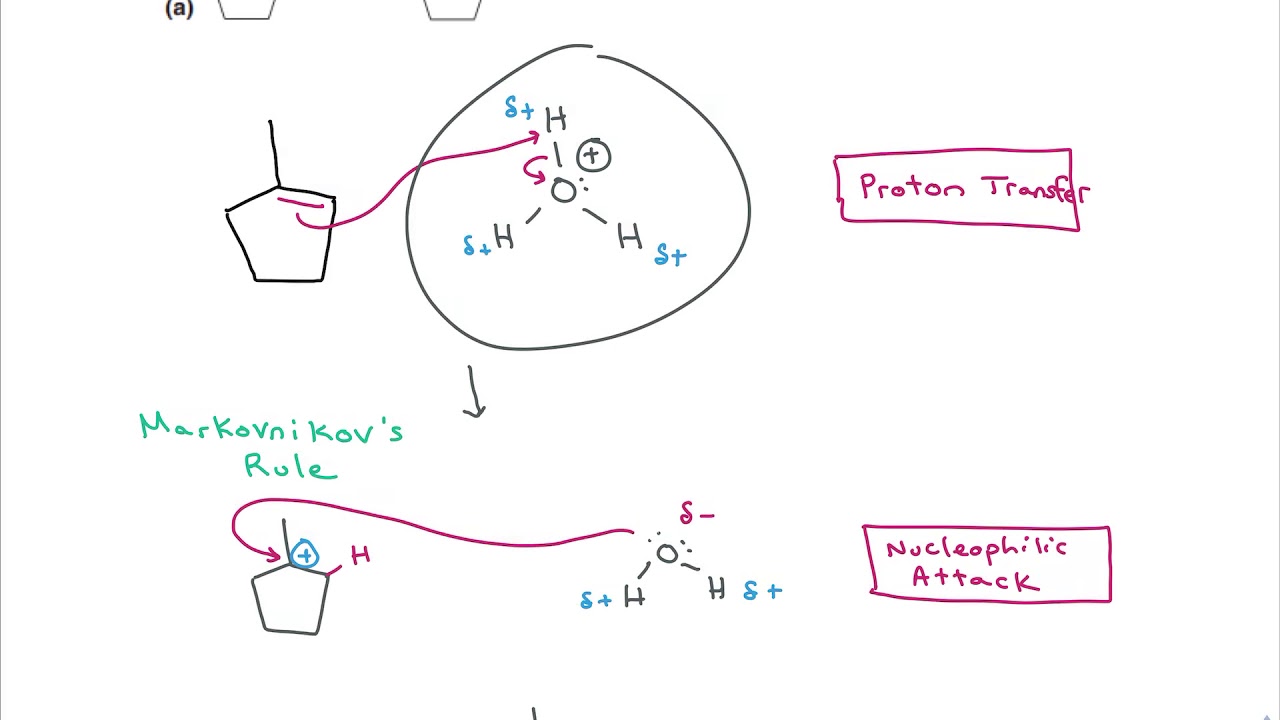 (a)
δ+ H
+
O
δ+ H
H δ+
Proton Transfer
Markovnikov's
Rule
+ H
δ-
O
δ+ H
H δ+
Nucleophilic
Attack